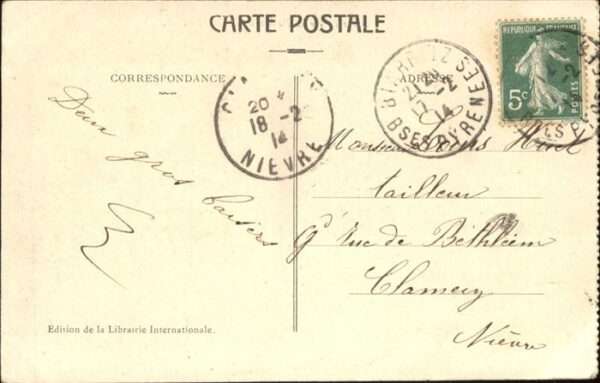 CARTE POSTALE
CORRESPONDANCE
ADRESSE
RÉPUBLIQUE FRANÇAISE
5c
POSTES
BIARRITZ
21
17-2
14
BSES PYRENEES
20
18-2
14
NIEVRE
Deux gros baisers
Monsieur Louis
tailleur
9 rue de Bethléem
Clamecy
Nièvre
Edition de la Librairie Internationale.